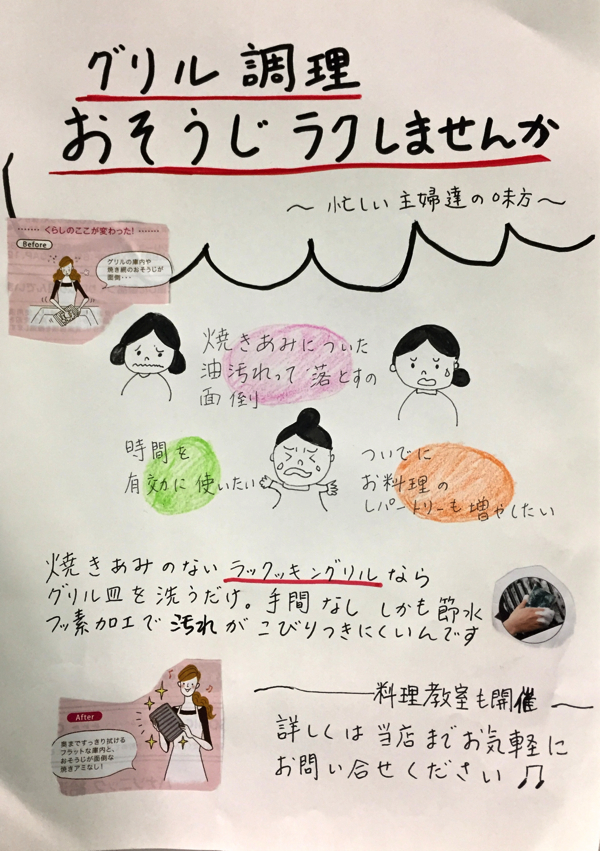 グリル調理
おそうじラクしませんか
～忙しい主婦達の味方～
くらしのここが変わった!
Before
グリルの庫内や
焼き網のおそうじが
面倒・・・
焼きあみについた
油汚れって落とすの
面倒
時間を
有効に使いたい
ついでに
お料理の
レパートリーも増やしたい
焼きあみのないラックッキングリルなら
グリル皿を洗うだけ。手間なし しかも節水
フッ素加工で汚れがこびりつきにくいんです
After
奥まですっきり拭ける
フラットな庫内と、
おそうじが面倒な
焼きアミなし!
料理教室も開催～
詳しくは当店までお気軽に
お問い合せください♫